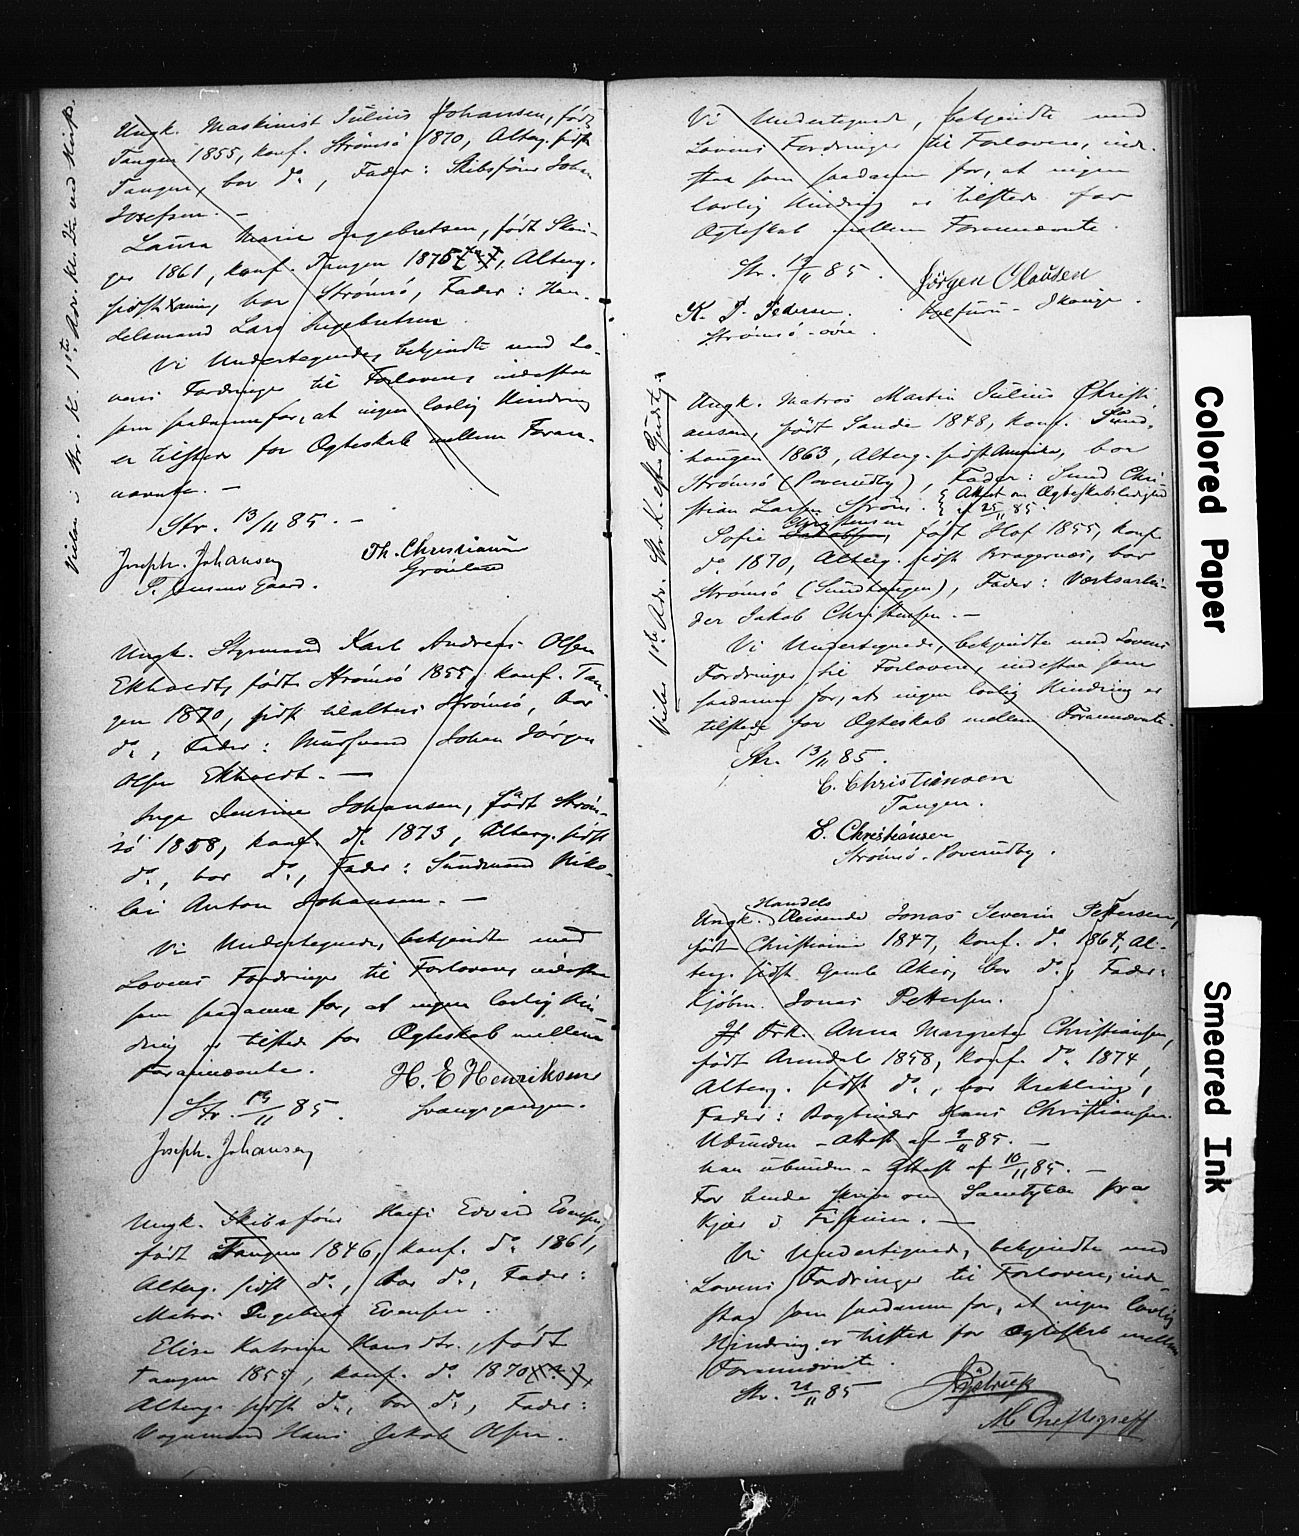 Vielse i Str. K. 1ste Adv. Kl.
Ungk. Maskinist Julius Johansen, født
Tangen 1855, konf. Strømsø 1870, Alterg. sidst
Tangen, bor do, Fader: Skibsfører Johan
Josefsen. —
Laura Marie Ingebretsen, født Sko-
ger 1861, konf. Tangen 1875, Alterg.
sidst, bor Strømsø, Fader: Han-
delsmand Lars Ingebretsen
Vi Undertegnede, bekjendte med Lo-
vens Fordringer til Forlovere, indestaa
som saadanne for, at ingen lovlig Hindring
er tilstede for Ægteskab mellem Foran-
nævnte. —
Str. 13/11 85. —
Joseph. Johansen
Th. Christiansen
Grønland
P. Jensen Gaard.
Ungk. Styrmand Karl Andreas Olsen
Ekholdt, født Strømsø 1855, konf. Tan-
gen 1870, sidst tilalters Strømsø, bor
do, Fader: Johan Jørgen
Olsen Ekholdt. —
Inga Johansen, født Strøm-
sø 1858, konf. do 1873, Alterg. sidst
do, bor do, Fader: Sundmand Niko-
lai Anton Johansen. —
Vi Undertegnede, bekjendte med
Lovens Fordringer til Forlovere, indestaa
som saadanne for, at ingen lovlig Hin-
dring er tilstede for Ægteskab mellem
Forannævnte.
H. E Henriksen
Str. 13/11 85.
Svangsgangen.
Joseph. Johansen
Ungk. Skibsfører Hans Edvard Evensen,
født Tangen 1846, konf. do 1861,
Alterg. sidst do, bor do, Fader:
Matros Ingebret Evensen.
Elise Katrine Hansdtr., født
Tangen 1855, konf. do 1870,
Alterg. sidst do, bor do, Fader:
Vognmand Hans Jakob Olsen.
Vi Undertegnede, bekjendte med
Lovens Fordringer til Forlovere, inde-
staa som saadanne for, at ingen
lovlig Hindring er tilstede for
Ægteskab mellem Forannævnte.
Str. 12/11 85.
Jørgen Clausen
K. P. Pedersen.
Skauge.
Strømsø
Vielse 1ste Adv. Str. K. efter Gudstj.
Ungk. Matros Martin Julius Christi-
ansen, født Sande 1848, konf. Sund-
haugen 1863, Alterg. sidst Amerika, bor
Strømsø (Poverudby), Fader: Sund Chri-
stian Larsen Strøm. { Attest om Ægteskabsledighed
{ af 25/11 85.
Christensen
Sofie Jakobsen, født Hof 1855, konf.
do 1870, Alterg. sidst Bragernæs, bor
Strømsø (Sundhaugen), Fader: Værksarbei-
der Jakob Christensen. —
Vi Undertegnede, bekjendte med Lovens
Fordringer til Forlovere, indestaa som
saadanne for, at ingen lovlig Hindring er
tilstede for Ægteskab mellem Forannævnte.
Str. 13/11 85.
C. Christiansen
Tangen.
S. Christiansen
Strømsø. Poverudby.
Handels
Ungk. Reisende Jonas Severin Pettersen,
født Christiania 1847, konf. do 1864, Al-
terg. sidst Gamle Aker, bor do, Fader:
Kjøbm. Jonas Pettersen.
Frk. Anna Margrete Christiansen,
født Arendal 1858, konf. do 1874,
Alterg. sidst do, bor Krekling,
Fader: Bogbinder Hans Christiansen.
Ubunden – Attest af 9/11 85. —
han ubunden – Attest af 10/11 85. —
For hende skriv. om Samtykke fra
Kjær i Fiskum. —
Vi Undertegnede, bekjendte med
Lovens Fordringer til Forlovere, inde-
staa som saadanne for, at ingen lovlig
Hindring er tilstede for Ægteskab mellem
Forannævnte.
Str. 21/11 85
M Greftegreff
Colored Paper
Smeared Ink